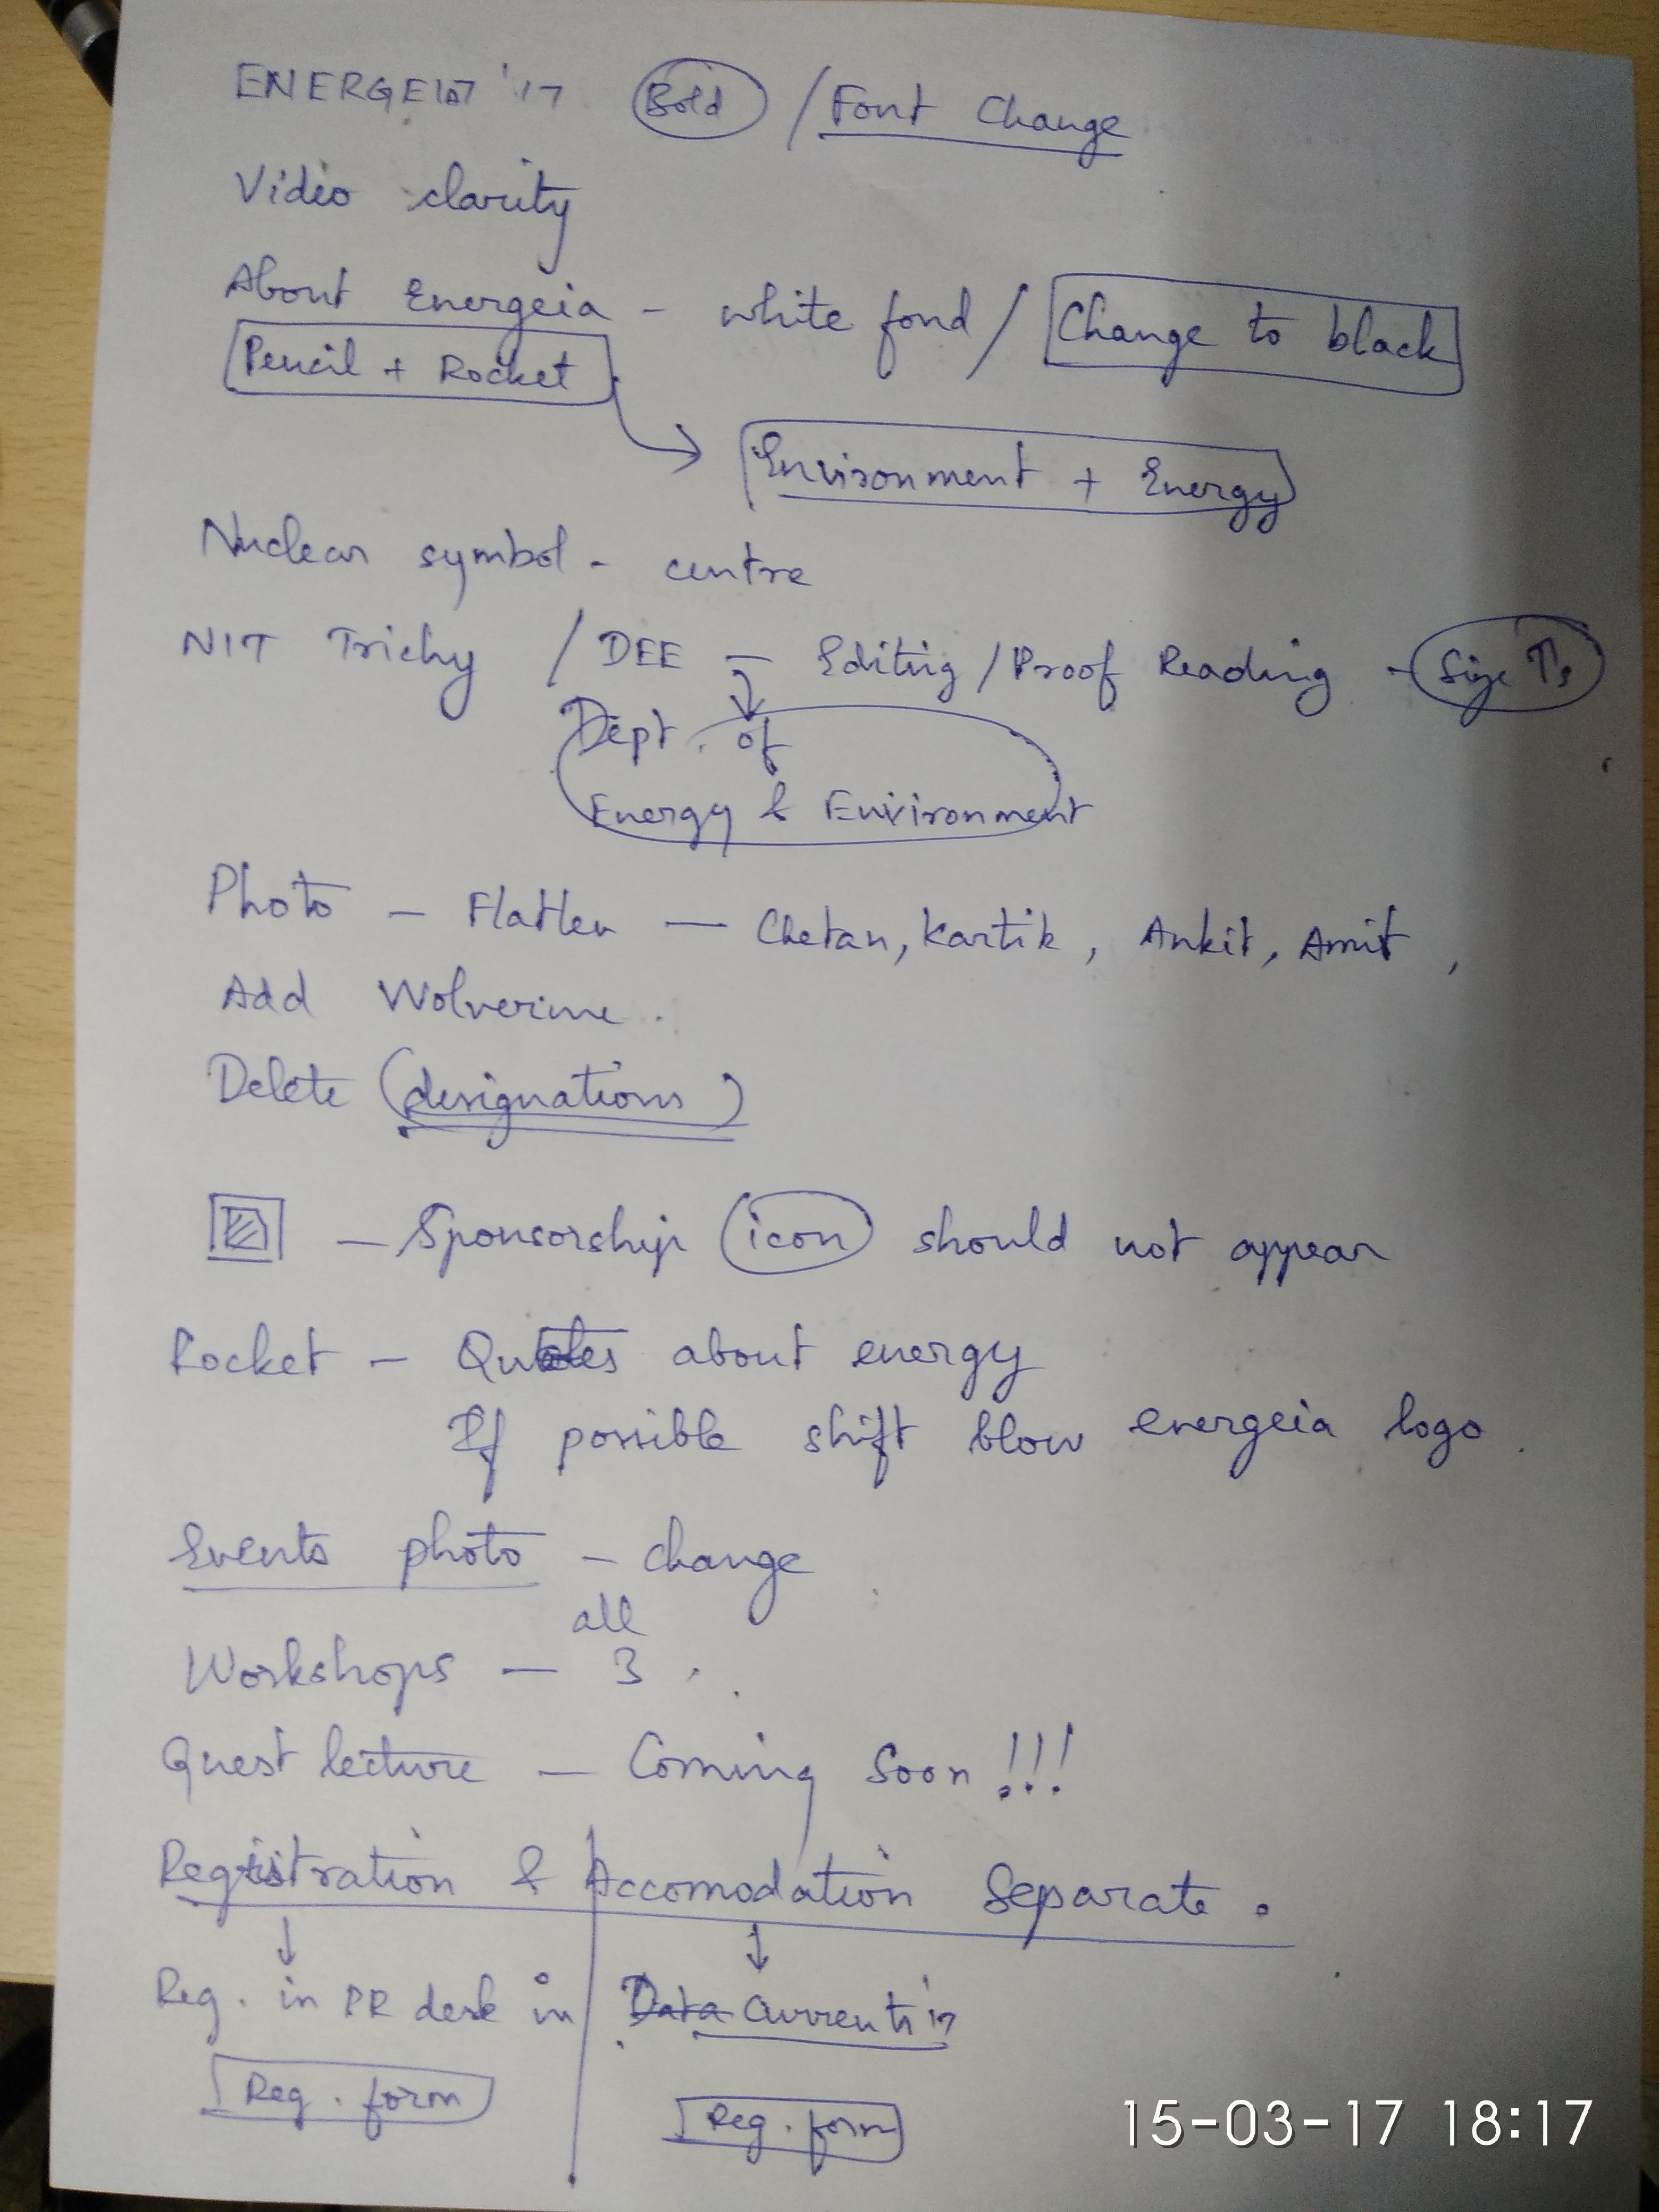 ENERGEIA '17 Bold / Font Change
Video clarity
About Energeia - white fond / Change to black
Pencil + Rocket
Environment + Energy
Nuclear symbol - centre
NIT Trichy / DEE - Editing / Proof Reading - Size ↑s
Dept. of
Energy & Environment
Photo - Flatten - Chetan, Kartik, Ankit, Amit,
Add Wolverine.
Delete (designations)
- Sponsorship (icon) should not appear
Rocket - Quotes about energy
If possible shift blow energeia logo.
Events photo - change
all
Workshops - 3.
Guest lecture - Coming Soon!!!
Registration & Accomodation Separate.
Reg. in PR desk in Data Currents'17
Reg. form
Reg. form
15-03-17 18:17